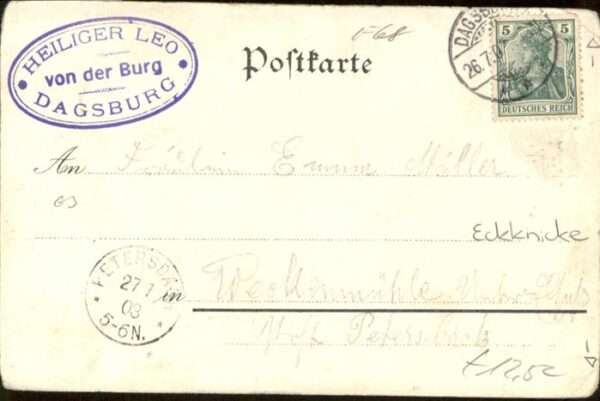 HEILIGER LEO
von der Burg
DAGSBURG
Postkarte
DAGSBURG
26.7.
5 5
DEUTSCHES REICH
An Fräulein Emma Müller
Eckknicke
PETERSBACH
27 7
03
5-6N.
in
Post Petersbach